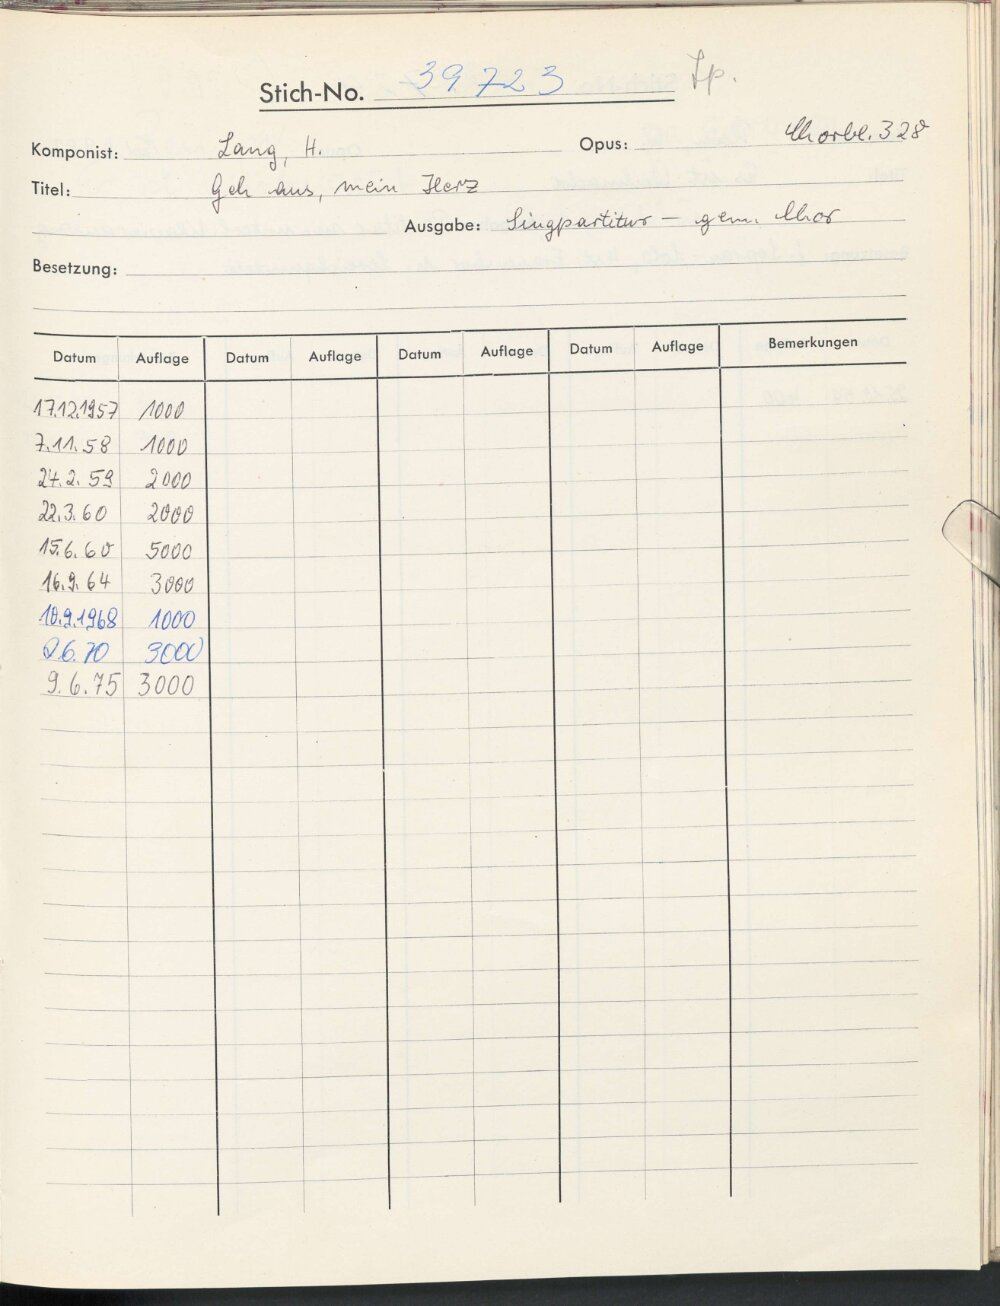 Stich-No. 39723
Komponist: Lang, H. Opus: Chorbl. 328
Titel: Geh aus, mein Herz
Ausgabe: Singpartitur – gem. Chor
Besetzung:
Datum Auflage Datum Auflage Datum Auflage Datum Auflage Bemerkungen
17.12.1957 1000
7.11.58 1000
24.2.59 2000
22.3.60 2000
15.6.60 5000
16.9.64 3000
10.9.1968 1000
6.70 3000
9.6.75 3000